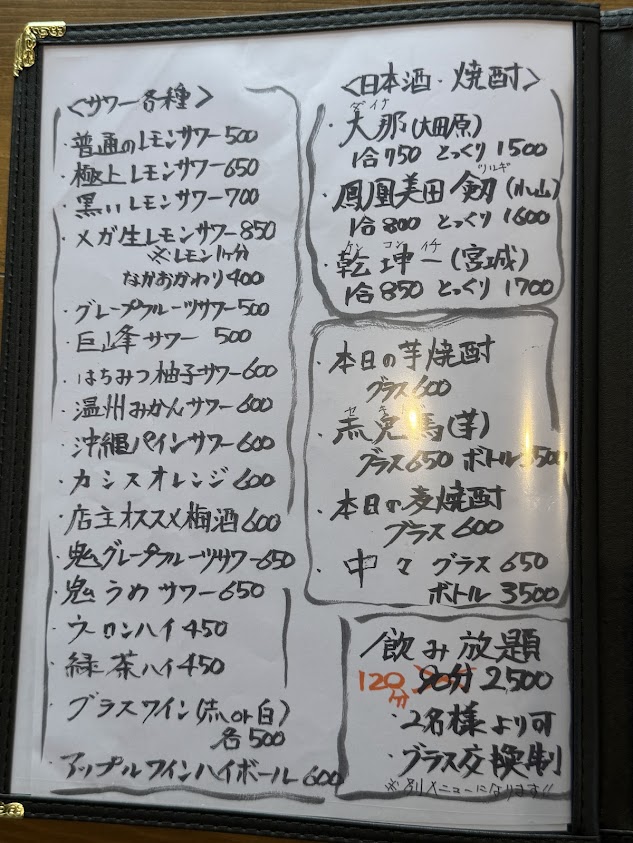 <サワー各種>
・普通のレモンサワー500
・極上レモンサワー650
・黒いレモンサワー700
・メガ生レモンサワー850
※レモン1ヶ分
なかおかわり400
・グレープフルーツサワー500
・巨峰サワー 500
・はちみつ柚子サワー600
・温州みかんサワー600
・沖縄パインサワー600
・カシスオレンジ600
・店主オススメ梅酒600
・鬼グレープフルーツサワー650
・鬼うめサワー650
・ウーロンハイ450
・緑茶ハイ450
・グラスワイン(赤or白)
各500
・アップルワインハイボール600
<日本酒・焼酎>
ダイナ
・大那(大田原)
1合750 とっくり1500
ツルギ
・鳳凰美田 剱(小山)
1合800 とっくり1600
ケンコンイチ
・乾坤一(宮城)
1合850 とっくり1700
・本日の芋焼酎
グラス600
・赤兎馬(芋)
グラス650 ボトル3500
・本日の麦焼酎
グラス600
・中々 グラス650
ボトル3500
飲み放題
120分 90分 2500
・2名様より可
・グラス交換制
※別メニューになります!!